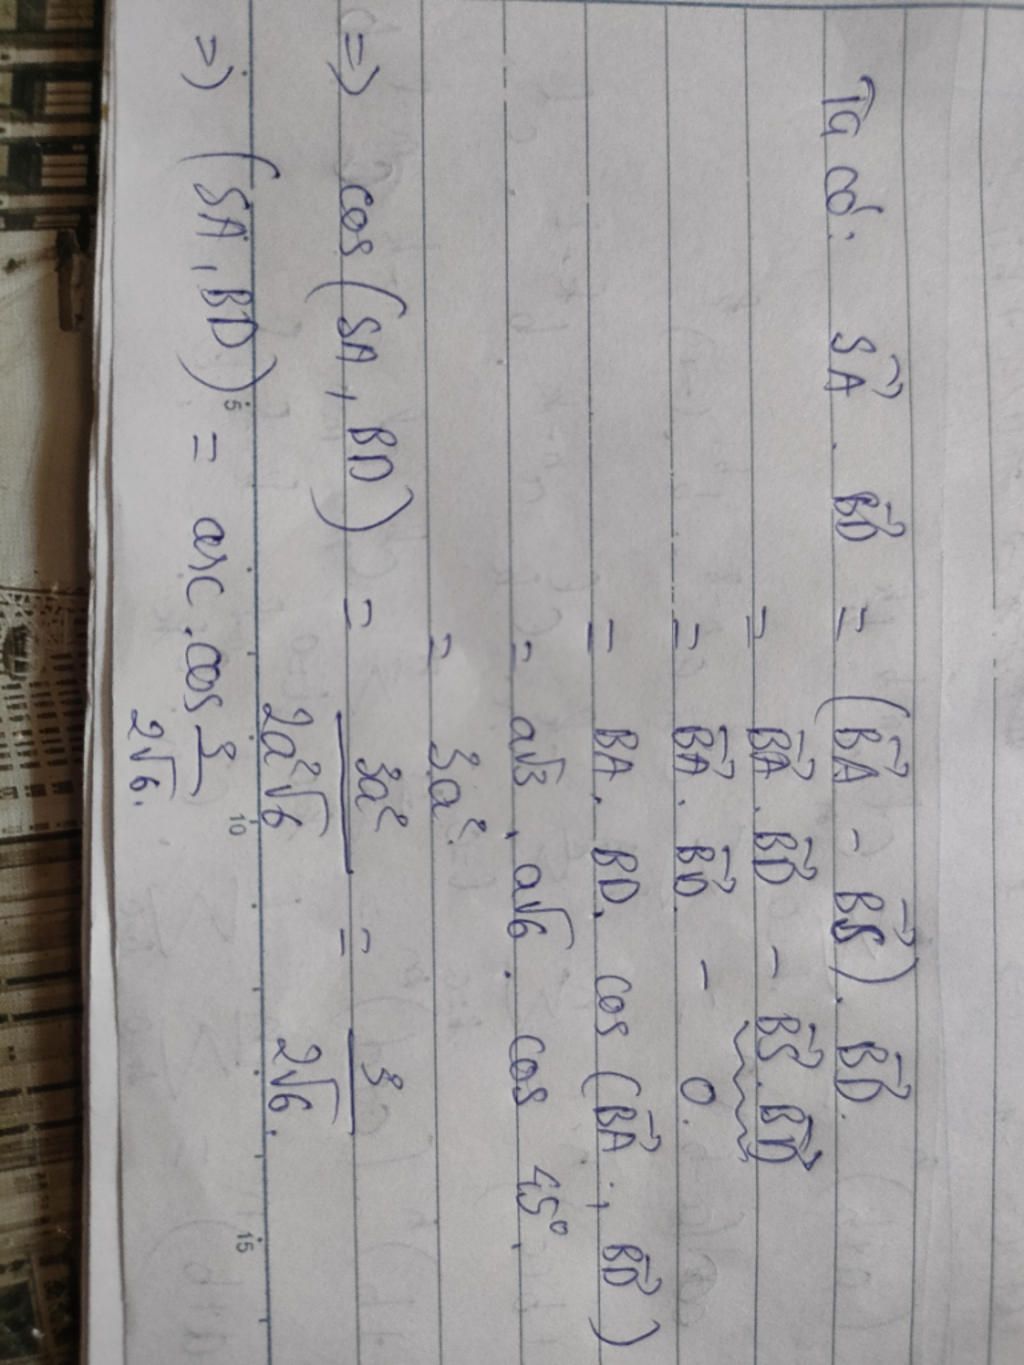 Ta có: SA⃗ . BD⃗ = (BA⃗ - BS⃗). BD⃗.
= BA⃗ . BD⃗ - BS⃗. BD⃗
= BA⃗ . BD⃗ - 0.
= BA. BD. cos (BA⃗ , BD⃗)
= a√3 . a√6 . cos 45°.
= 3a².
=> cos (SA, BD) = 3a²/2a²√6 = 3/2√6.
=> (SA, BD) = arc.cos 3/2√6.
5 10 15